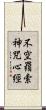 不空羂索
神咒心經